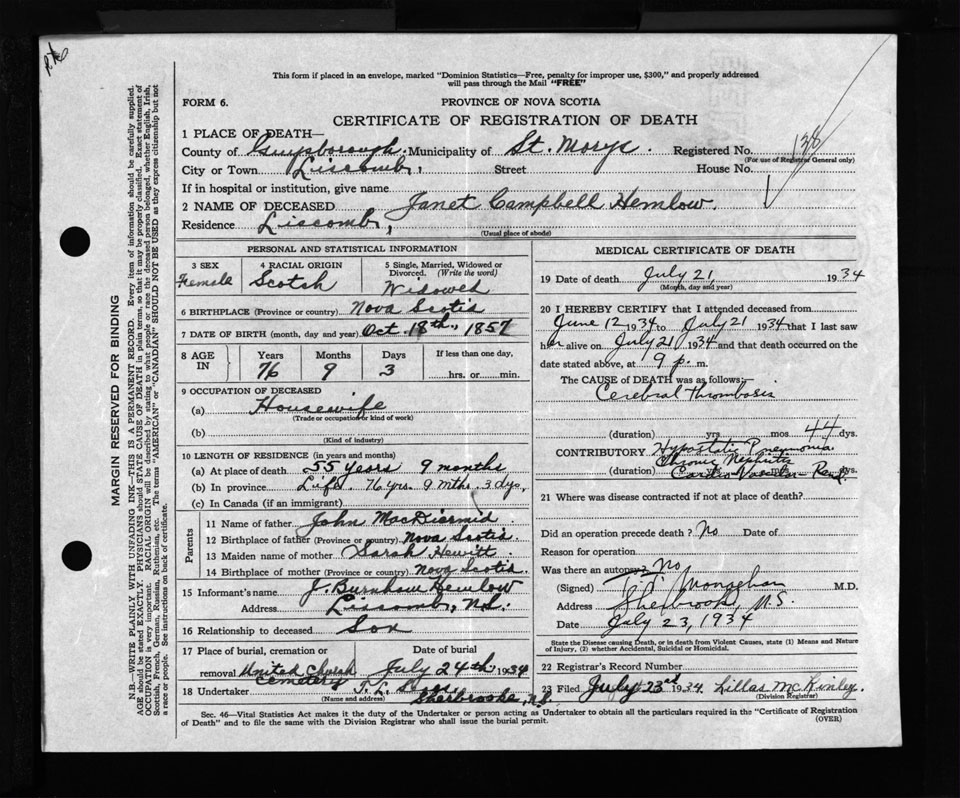 This form if placed in an envelope, marked "Dominion Statistics—Free, penalty for improper use, $300," and properly addressed
will pass through the Mail "FREE"
FORM 6.
PROVINCE OF NOVA SCOTIA
CERTIFICATE OF REGISTRATION OF DEATH
MARGIN RESERVED FOR BINDING
N.B.—WRITE PLAINLY WITH UNFADING INK—THIS IS A PERMANENT RECORD. Every item of information should be carefully supplied.
AGE should be stated EXACTLY. PHYSICIANS should STATE CAUSE OF DEATH in plain terms, so that it may be properly classified. Exact statement of
OCCUPATION is very important. RACIAL ORIGIN will be described by stating to what people or race the deceased person belonged, whether English, Irish,
Scottish, French, German, Russian, Ruthenian, etc. The terms "AMERICAN" or "CANADIAN" SHOULD NOT BE USED as they express citizenship but not
a race or people. See instructions on back of certificate.
1 PLACE OF DEATH—
County of Guysborough. Municipality of St. Marys. Registered No. 138
(For use of Registrar General only)
City or Town Liscomb, Street House No.
If in hospital or institution, give name
2 NAME OF DECEASED Janet Campbell Hemlow.
Residence Liscomb,
(Usual place of abode)
PERSONAL AND STATISTICAL INFORMATION
3 SEX 4 RACIAL ORIGIN 5 Single, Married, Widowed or
Divorced. (Write the word)
Female Scotch Widowed
6 BIRTHPLACE (Province or country) Nova Scotia
7 DATE OF BIRTH (month, day and year) Oct. 18th, 1857
8 AGE IN Years Months Days If less than one day,
76 9 3 hrs. or min.
9 OCCUPATION OF DECEASED
(a) Housewife
(Trade or occupation or kind of work)
(b)
(Kind of industry)
10 LENGTH OF RESIDENCE (in years and months)
(a) At place of death 55 years 9 months
(b) In province Life 76 yrs. 9 mths. 3 dys,
(c) In Canada (if an immigrant)
Parents
11 Name of father John MacDiarmid
12 Birthplace of father (Province or country) Nova Scotia.
13 Maiden name of mother Sarah Hewitt.
14 Birthplace of mother (Province or country) Nova Scotia.
15 Informant's name J. Burnham Hemlow
Address Liscomb, N.S.
16 Relationship to deceased Son
17 Place of burial, cremation or Date of burial
removal United Church Cemetery July 24th, 1934
18 Undertaker T. L.
(Name and address) Sherbrooke, N.S.
MEDICAL CERTIFICATE OF DEATH
19 Date of death July 21, 1934
(Month, day and year)
20 I HEREBY CERTIFY that I attended deceased from
June 12 1934 to July 21 1934 that I last saw
her alive on July 21 1934 and that death occurred on the
date stated above, at 9 p. m.
The CAUSE of DEATH was as follows:
Cerebral Thrombosis
(duration) yrs. mos 44 dys.
CONTRIBUTORY Hypostatic Pneumonia
Chronic Nephritis
(duration) yrs. mos. dys.
Cardio-Vascular-Renal
21 Where was disease contracted if not at place of death?
Did an operation precede death? No Date of
Reason for operation
Was there an autopsy? No
(Signed) M.D.
Address Sherbrooke, N.S.
Date July 23, 1934
State the Disease causing Death, or in death from Violent Causes, state (1) Means and Nature
of Injury, (2) whether Accidental, Suicidal or Homicidal.
22 Registrar's Record Number
23 Filed July 23rd 1934 Lillas McKinley
(Division Registrar)
Sec. 46—Vital Statistics Act makes it the duty of the Undertaker or person acting as Undertaker to obtain all the particulars required in the "Certificate of Registration
of Death" and to file the same with the Division Registrar who shall issue the burial permit.
(OVER)